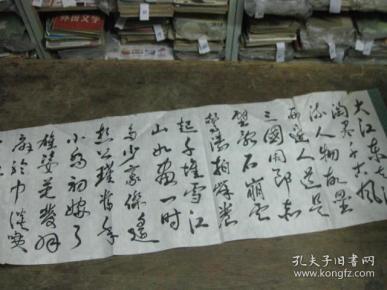 大江东去浪
淘尽千古风
流人物故垒
西边人道是
三国周郎赤
壁乱石崩云
惊涛拍岸卷
起千堆雪江
山如画一时
多少豪杰遥
想公瑾当年
小乔初嫁了
雄姿英发羽
扇纶巾谈笑
外国文学
孔夫子旧书网
www.kongfz.com